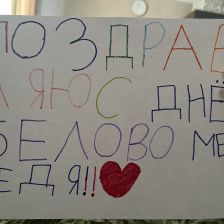 ПОЗДРАВ
Л ЯЮ С ДНЁ
БЕЛОВО МЕ
ЕДЯ!!